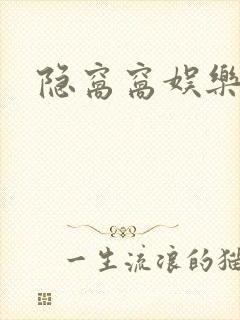 隐窝窝娱樂
一生流浪的猫